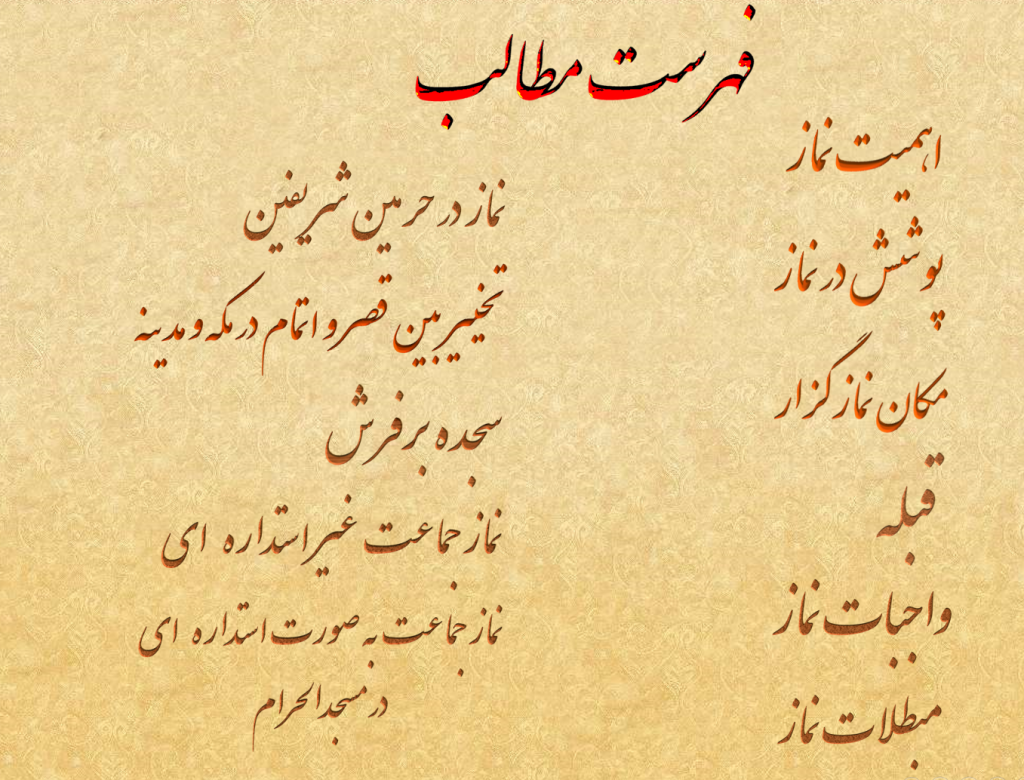 فهرست مطالب
اهمیت نماز
پوشش در نماز
مکان نمازگزار
قبله
واجبات نماز
مبطلات نماز
نماز در حرمین شریفین
تخییر بین قصر و اتمام در مکه و مدینه
سجده بر فرش
نماز جماعت غیر استداره ای
نماز جماعت به صورت استداره ای
در مسجد الحرام